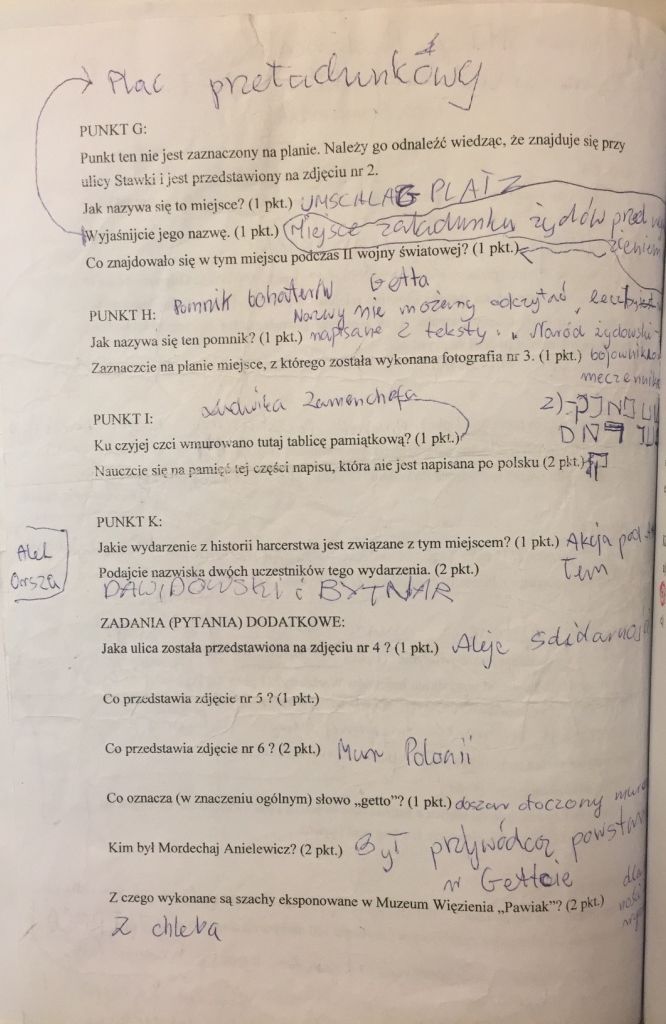 Plac przeładunkówy
PUNKT G:
Punkt ten nie jest zaznaczony na planie. Należy go odnaleźć wiedząc, że znajduje się przy
ulicy Stawki i jest przedstawiony na zdjęciu nr 2.
Jak nazywa się to miejsce? (1 pkt.) UMSCHLAG PLATZ
Wyjaśnijcie jego nazwę. (1 pkt.) Miejsce załadunku żydów przed
Co znajdowało się w tym miejscu podczas II wojny światowej? (1 pkt.)
Pomnik bohaterów Getta
PUNKT H: Nazwy nie możemy odczytać, lecz
Jak nazywa się ten pomnik? (1 pkt.) napisane 2 teksty: „Naród żydowski
Zaznaczcie na planie miejsce, z którego została wykonana fotografia nr 3. (1 pkt.)
Ludwika Zamenhofa 2)
PUNKT I:
Ku czyjej czci wmurowano tutaj tablicę pamiątkową? (1 pkt.)
Nauczcie się na pamięć tej części napisu, która nie jest napisana po polsku (2 pkt.)
PUNKT K:
Jakie wydarzenie z historii harcerstwa jest związane z tym miejscem? (1 pkt.) Akcja pod
Alek
Orsza
Podajcie nazwiska dwóch uczestników tego wydarzenia. (2 pkt.)
DAWIDOWSKI i BYTNAR
ZADANIA (PYTANIA) DODATKOWE:
Jaka ulica została przedstawiona na zdjęciu nr 4 ? (1 pkt.) Aleje
Co przedstawia zdjęcie nr 5 ? (1 pkt.)
Co przedstawia zdjęcie nr 6 ? (2 pkt.) Mur Polonii
Co oznacza (w znaczeniu ogólnym) słowo „getto"? (1 pkt.) otoczony
Kim był Mordechaj Anielewicz? (2 pkt.) Był przywódcą
w Gettcie
Z czego wykonane są szachy eksponowane w Muzeum Więzienia „Pawiak"? (2 pkt.)
Z chleba